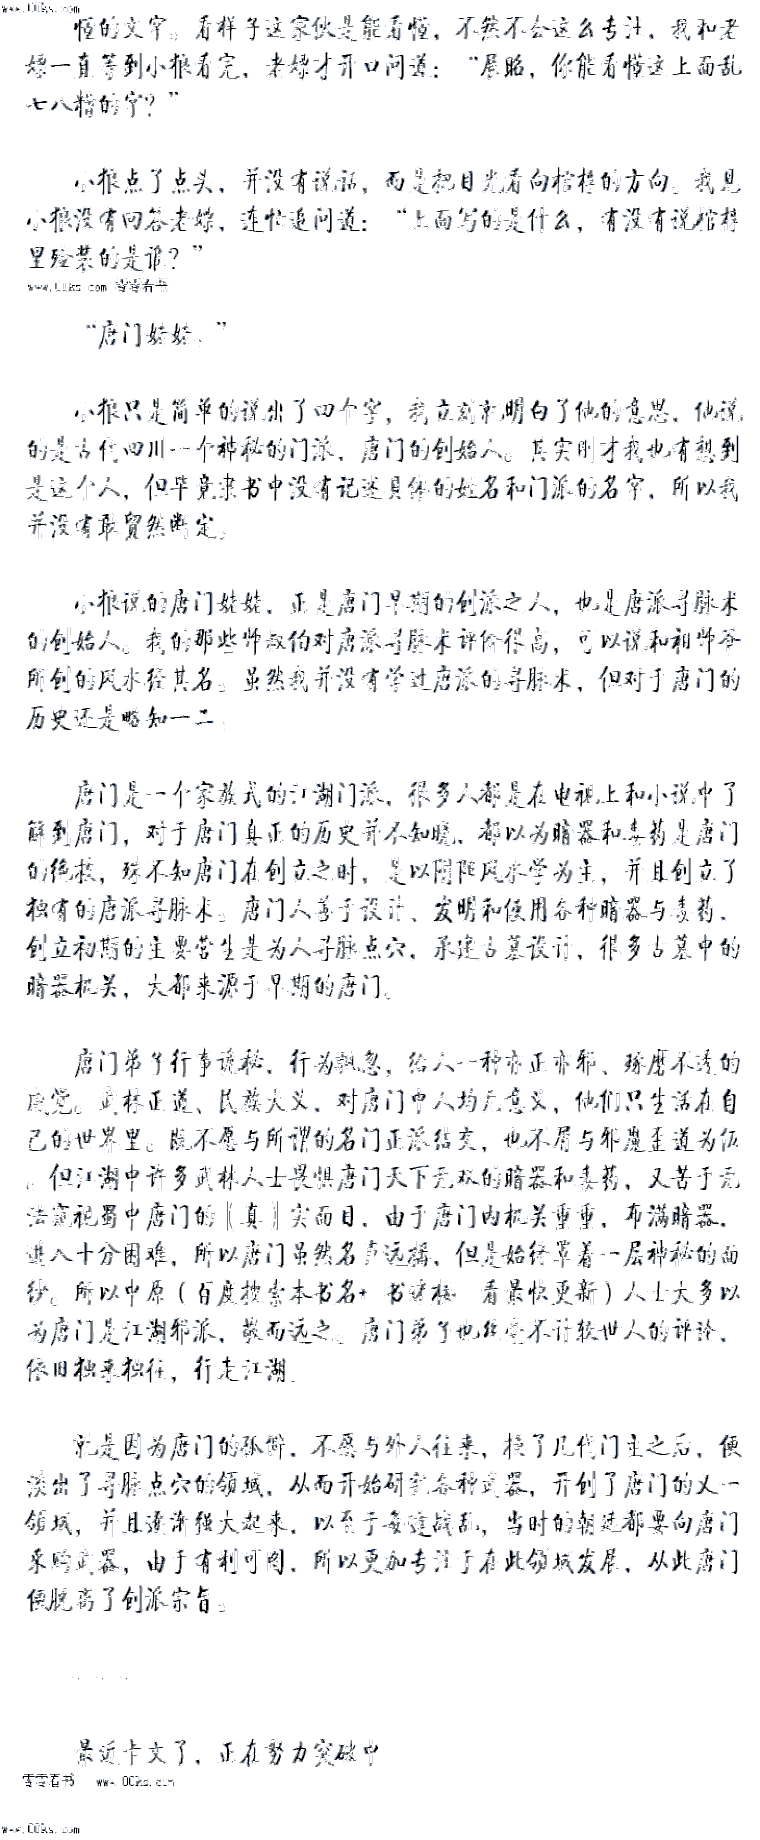 www.00ks.com
懂的文字。看样子这家伙是能看懂，不然不会这么专注，我和老
嫖一直等到小狼看完，老嫖才开口问道：“展昭，你能看懂这上面乱
七八糟的字？”
小狼点了点头，并没有说话，而是把目光看向棺椁的方向。我见
小狼没有回答老嫖，连忙追问道：“上面写的是什么，有没有说棺椁
里殓装的是谁？”
www.00ks.com 零零看书
“唐门姥姥．”
小狼只是简单的说出了四个字，我立刻就明白了他的意思，他说
的是古代四川一个神秘的门派，唐门的创始人。其实刚才我也有想到
是这个人，但毕竟隶书中没有记述具体的姓名和门派的名字，所以我
并没有敢贸然断定。
小狼说的唐门姥姥，正是唐门早期的创派之人，也是唐派寻脉术
的创始人。我的那些师叔伯对唐派寻脉术评价很高，可以说和祖师爷
所创的风水经其名。虽然我并没有学过唐派的寻脉术，但对于唐门的
历史还是略知一二．
唐门是一个家族式的江湖门派，很多人都是在电视上和小说中了
解到唐门，对于唐门真正的历史并不知晓，都以为暗器和毒药是唐门
的绝技，殊不知唐门在创立之时，是以阴阳风水学为主，并且创立了
独有的唐派寻脉术。唐门人善于设计、发明和使用各种暗器与毒药，
创立初期的主要营生是为人寻脉点穴，承建古墓设计，很多古墓中的
暗器机关，大都来源于早期的唐门。
唐门弟子行事诡秘，行为飘忽，给人一种亦正亦邪、琢磨不透的
感觉。武林正道、民族大义，对唐门中人均无意义，他们只生活在自
己的世界里。既不愿与所谓的名门正派结交，也不屑与邪魔歪道为伍
。但江湖中许多武林人士畏惧唐门天下无双的暗器和毒药，又苦于无
法窥视蜀中唐门的〖真〗实面目，由于唐门内机关重重，布满暗器，
进入十分困难，所以唐门虽然名声远播，但是始终罩着一层神秘的面
纱。所以中原（百度搜索本书名+ 书诸楼 看最快更新）人士大多以
为唐门是江湖邪派，敬而远之。唐门弟子也丝毫不计较世人的评论，
依旧独来独往，行走江湖．
就是因为唐门的孤僻，不愿与外人往来，换了几代门主之后，便
淡出了寻脉点穴的领域，从而开始研制各种武器，开创了唐门的又一
领域，并且逐渐强大起来，以至于每逢战乱，当时的朝廷都要向唐门
采购武器，由于有利可图，所以更加专注于在此领域发展，从此唐门
便脱离了创派宗旨。
．．．
最近卡文了，正在努力突破中
零零看书 www.00ks.com
www.00ks.com